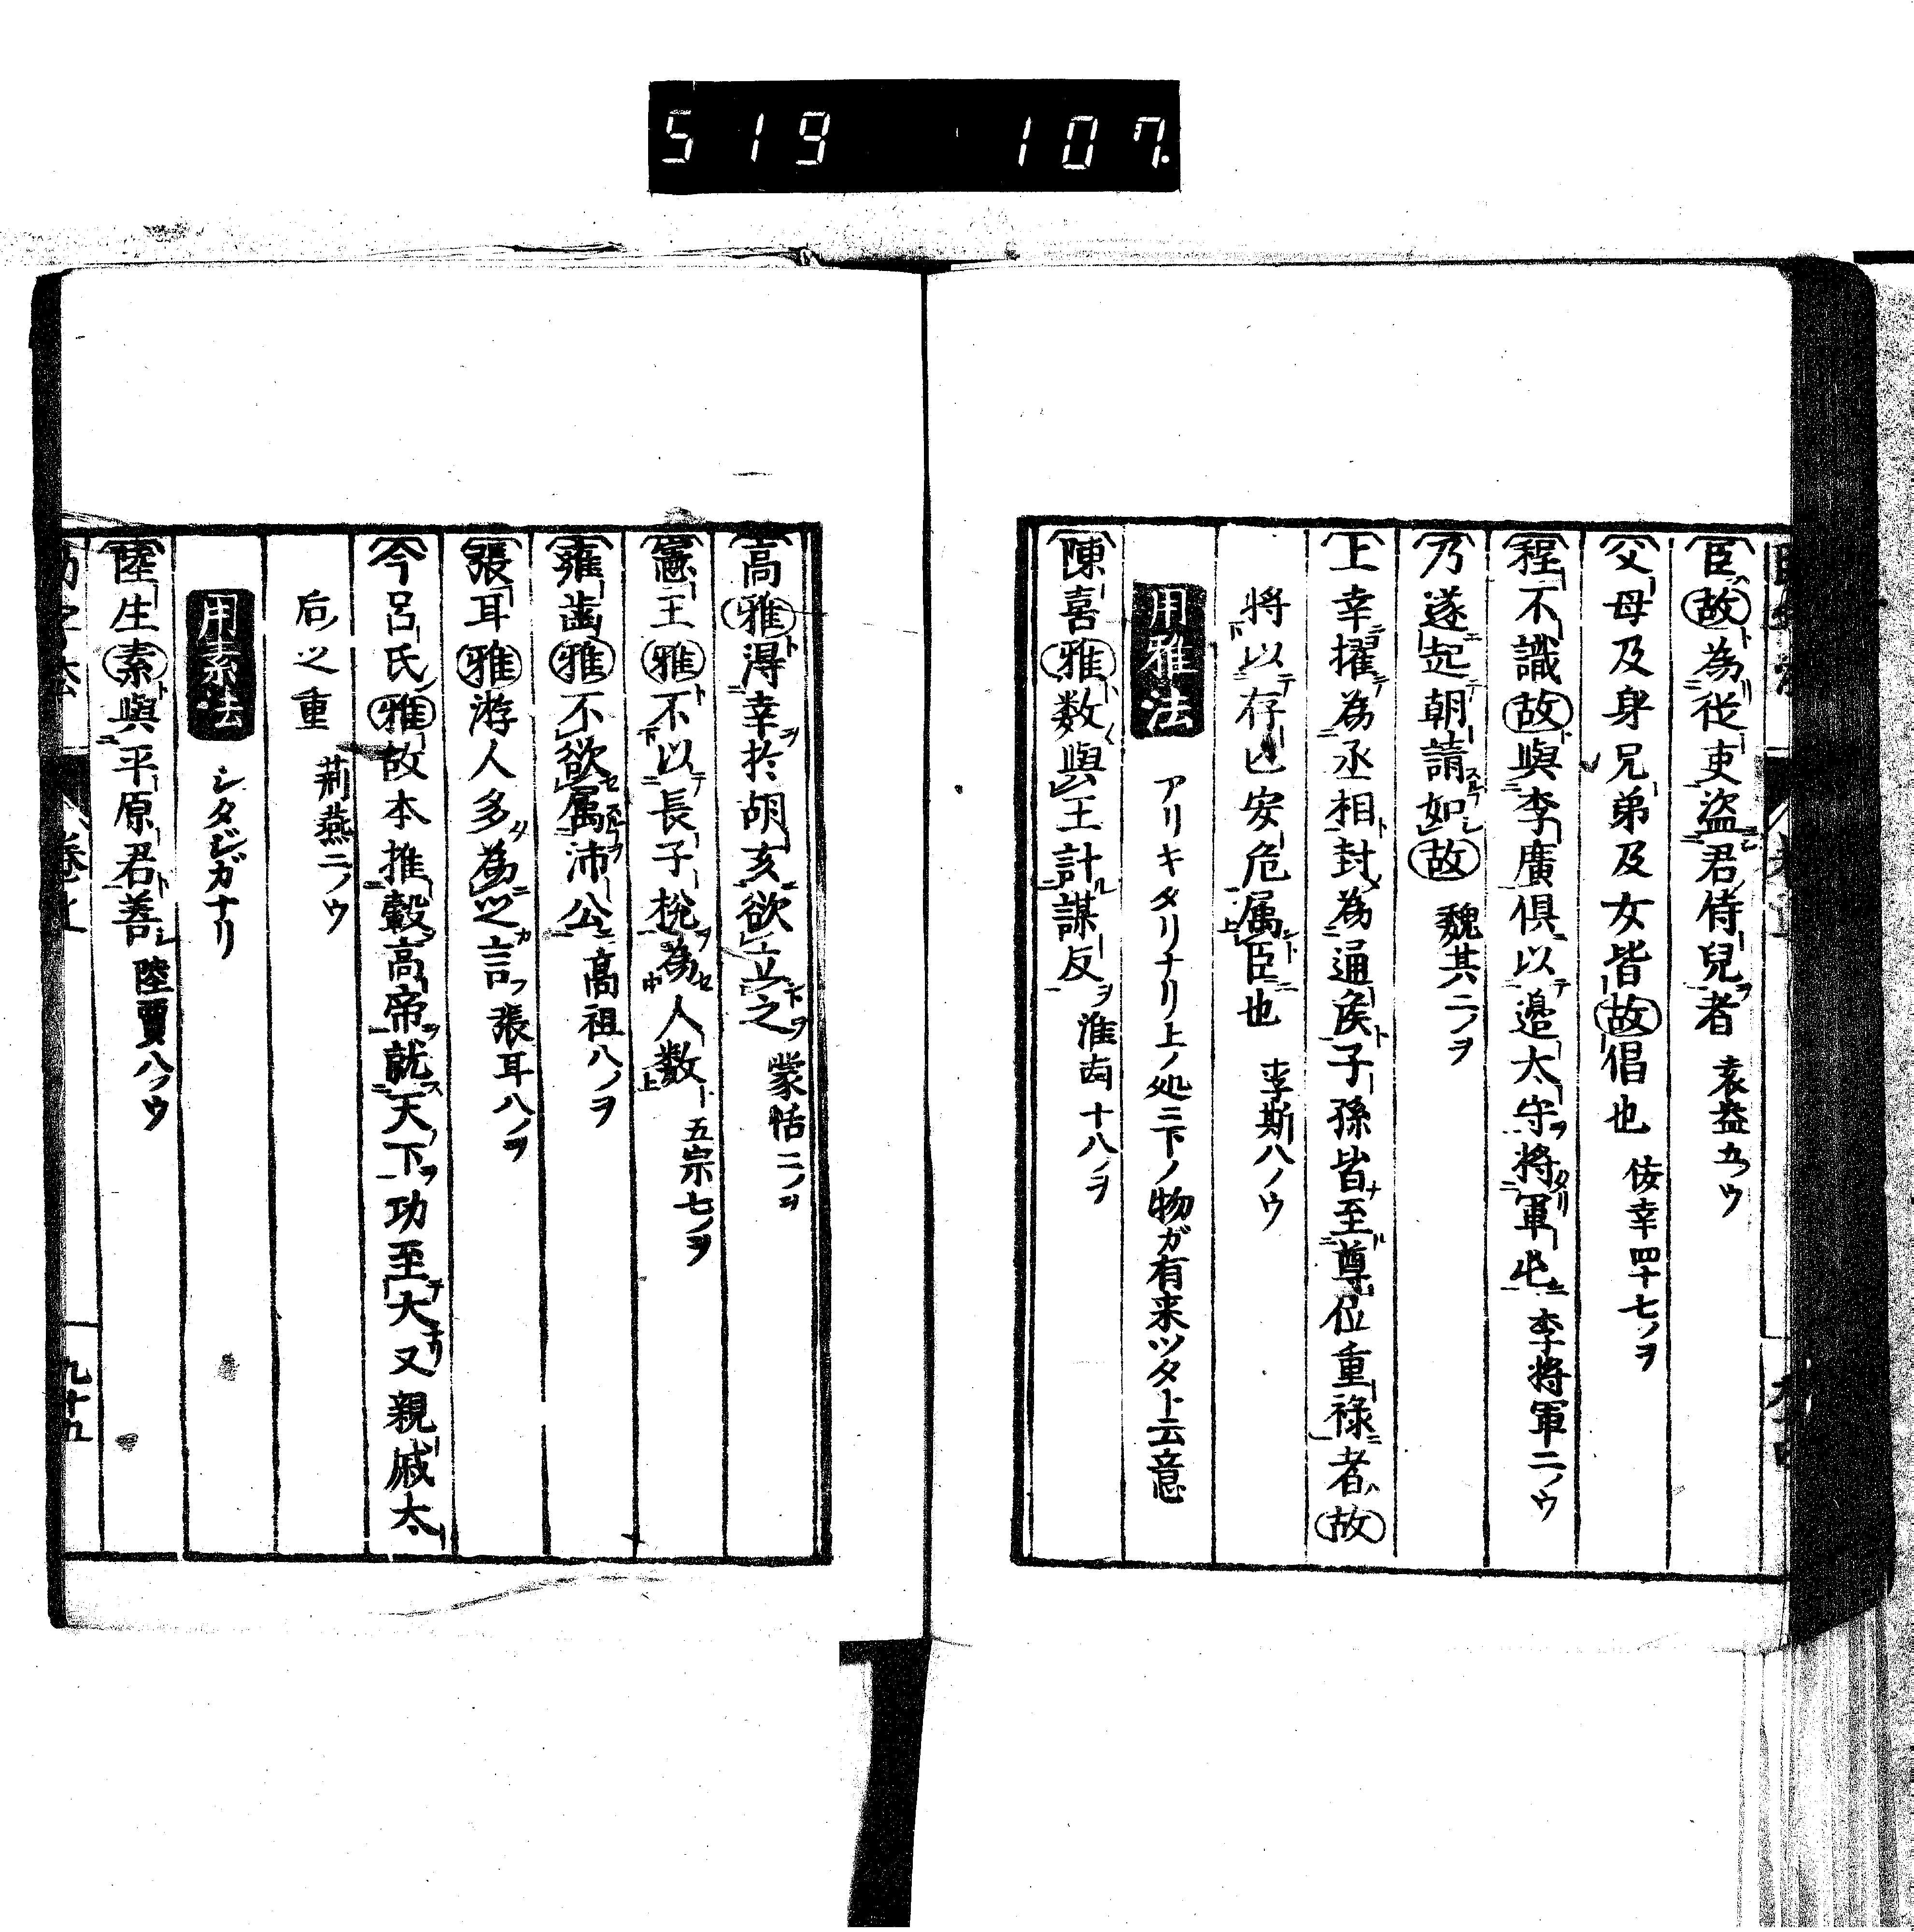 519 107
臣故為従吏盗君侍兒者 袁盎五ノウ
父母及身兄弟及女皆故倡也 佞幸四十七ノヲ
程不識故與李廣俱以邉太守将軍屯 李将軍二ノウ
乃遂起朝請如故 魏其二ノヲ
上幸擢為丞相封為通侯子孫皆至尊位重禄者故
将以存亡安危属臣也 李斯八ノウ
用雅法 アリキタリナリ上ノ処ニ下ノ物ガ有来ツタト云意
陳喜雅数與王計謀反 淮南十八ノヲ
高雅淂幸於胡亥欲立之 蒙恬二ノヲ
憲王雅不以長子梲為人数 五宗七ノヲ
雍歯雅不欲属沛公 高祖八ノヲ
張耳雅游人多為之言 張耳八ノヲ
今呂氏雅故本推轂高帝就天下功至大又親戚太
后之重 荊燕二ノウ
用素法 シタヂガナリ
陸生素與平原君善 陸賈八ノウ
九十五